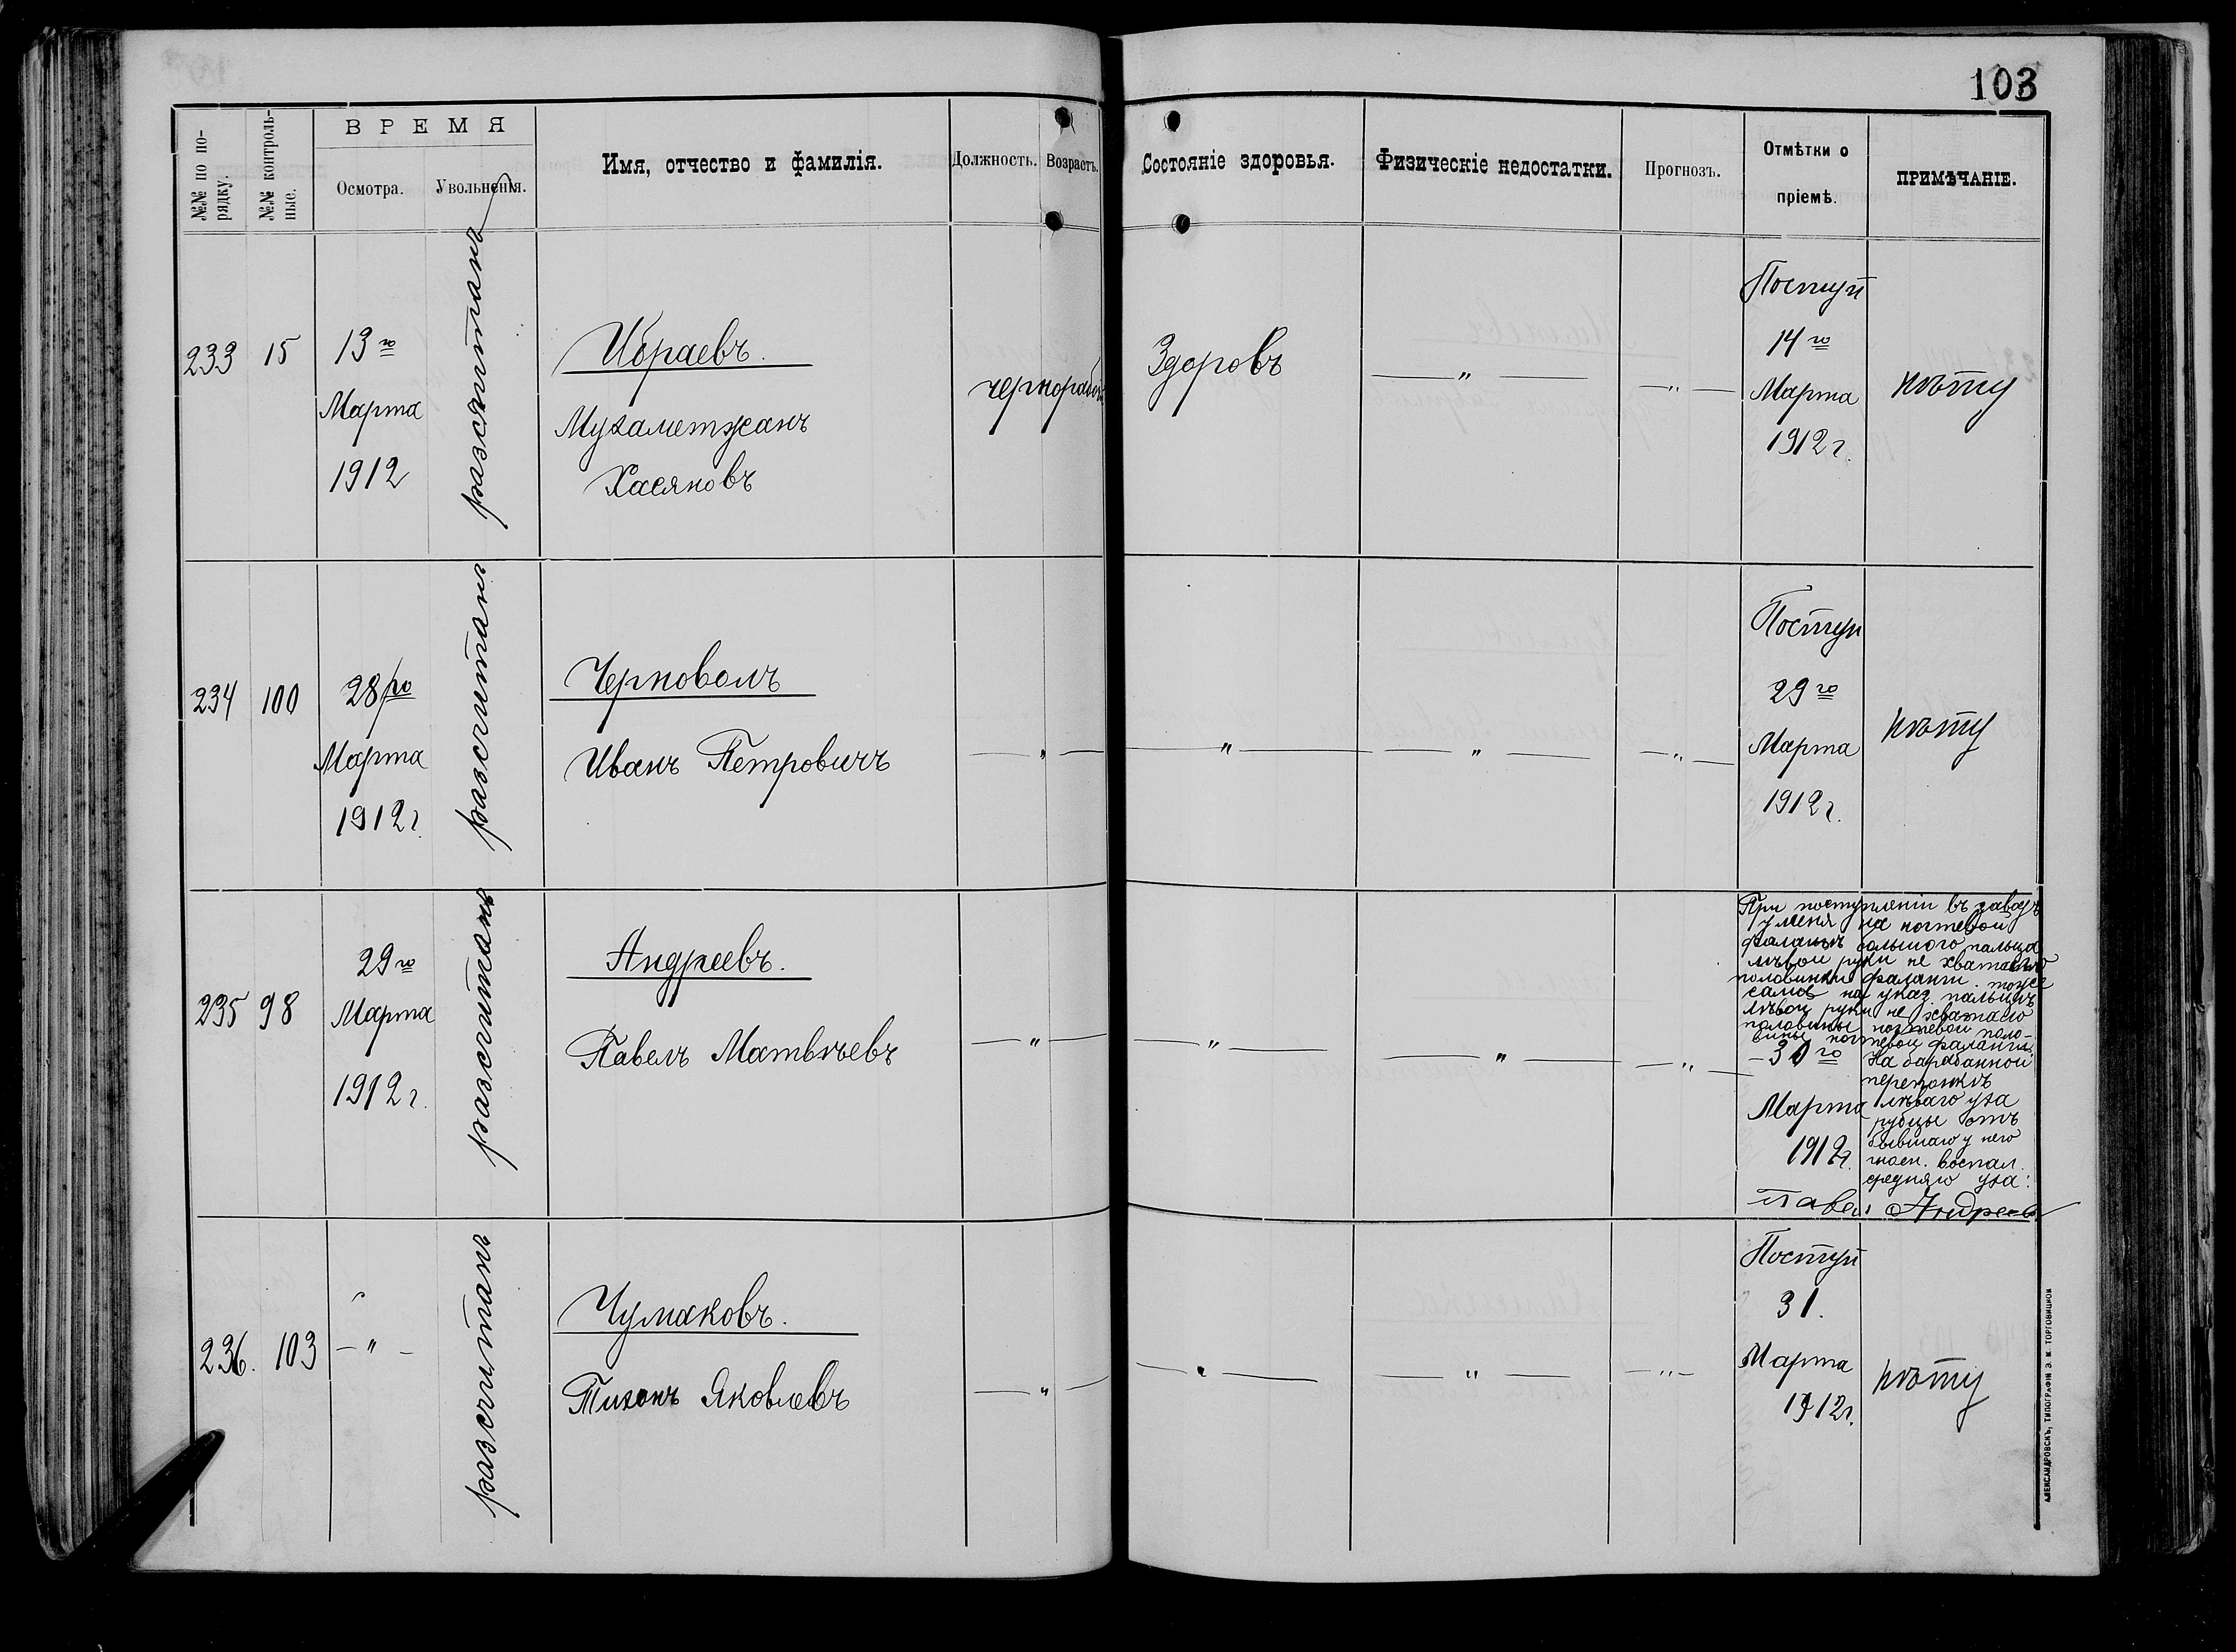 103
№№ по по-
рядку.
№№ контроль-
ные.
ВРЕМЯ
Осмотра.
Увольненія.
Имя, отчество и фамилія.
Должность.
Возрастъ.
Состояніе здоровья.
Физическіе недостатки.
Прогнозъ.
Отмѣтки о
пріемѣ.
ПРИМѢЧАНІЕ.
233
15
13го
Марта
1912
разсчитанъ
Ибраевъ.
Мухаметжанъ
Хасяновъ
чернорабоч
Здоровъ
— " —
— " —
Поступ
14го
Марта
1912 г.
нѣту
234
100
28го
Марта
1912 г.
разсчитанъ
Черноволъ
Иванъ Петровичъ
— " —
— " —
— " —
— " —
Поступ
29го
Марта
1912 г.
нѣту
235
98
29го
Марта
1912 г.
разсчитанъ
Андреевъ.
Павелъ Матвѣевъ
— " —
— " —
— " —
— " —
При поступленіи въ заводъ
у меня на ногтевой
фалангѣ большого пальца
лѣвой руки не хватаетъ
половинки фаланги. тоже
самое на указ. пальцѣ
лѣвой руки не хватало
половины ногтевой поло-
вины ногтевой фаланги.
— 30го
Марта
1912 г.
На барабанной
перепонкѣ
лѣваго уха
рубцы отъ
бывшаго у него
гноен. воспал.
средняго уха.
Павел Андреев
236.
103
— " —
разсчитанъ
Чумаковъ.
Тихонъ Яковлевъ
— " —
— " —
— " —
— " —
Поступ
31.
Марта
1912 г.
нѣту
АЛЕКСАНДРОВСКЪ, ТИПОГРАФІЯ Э. И. ТОРГОВИЦКОЙ